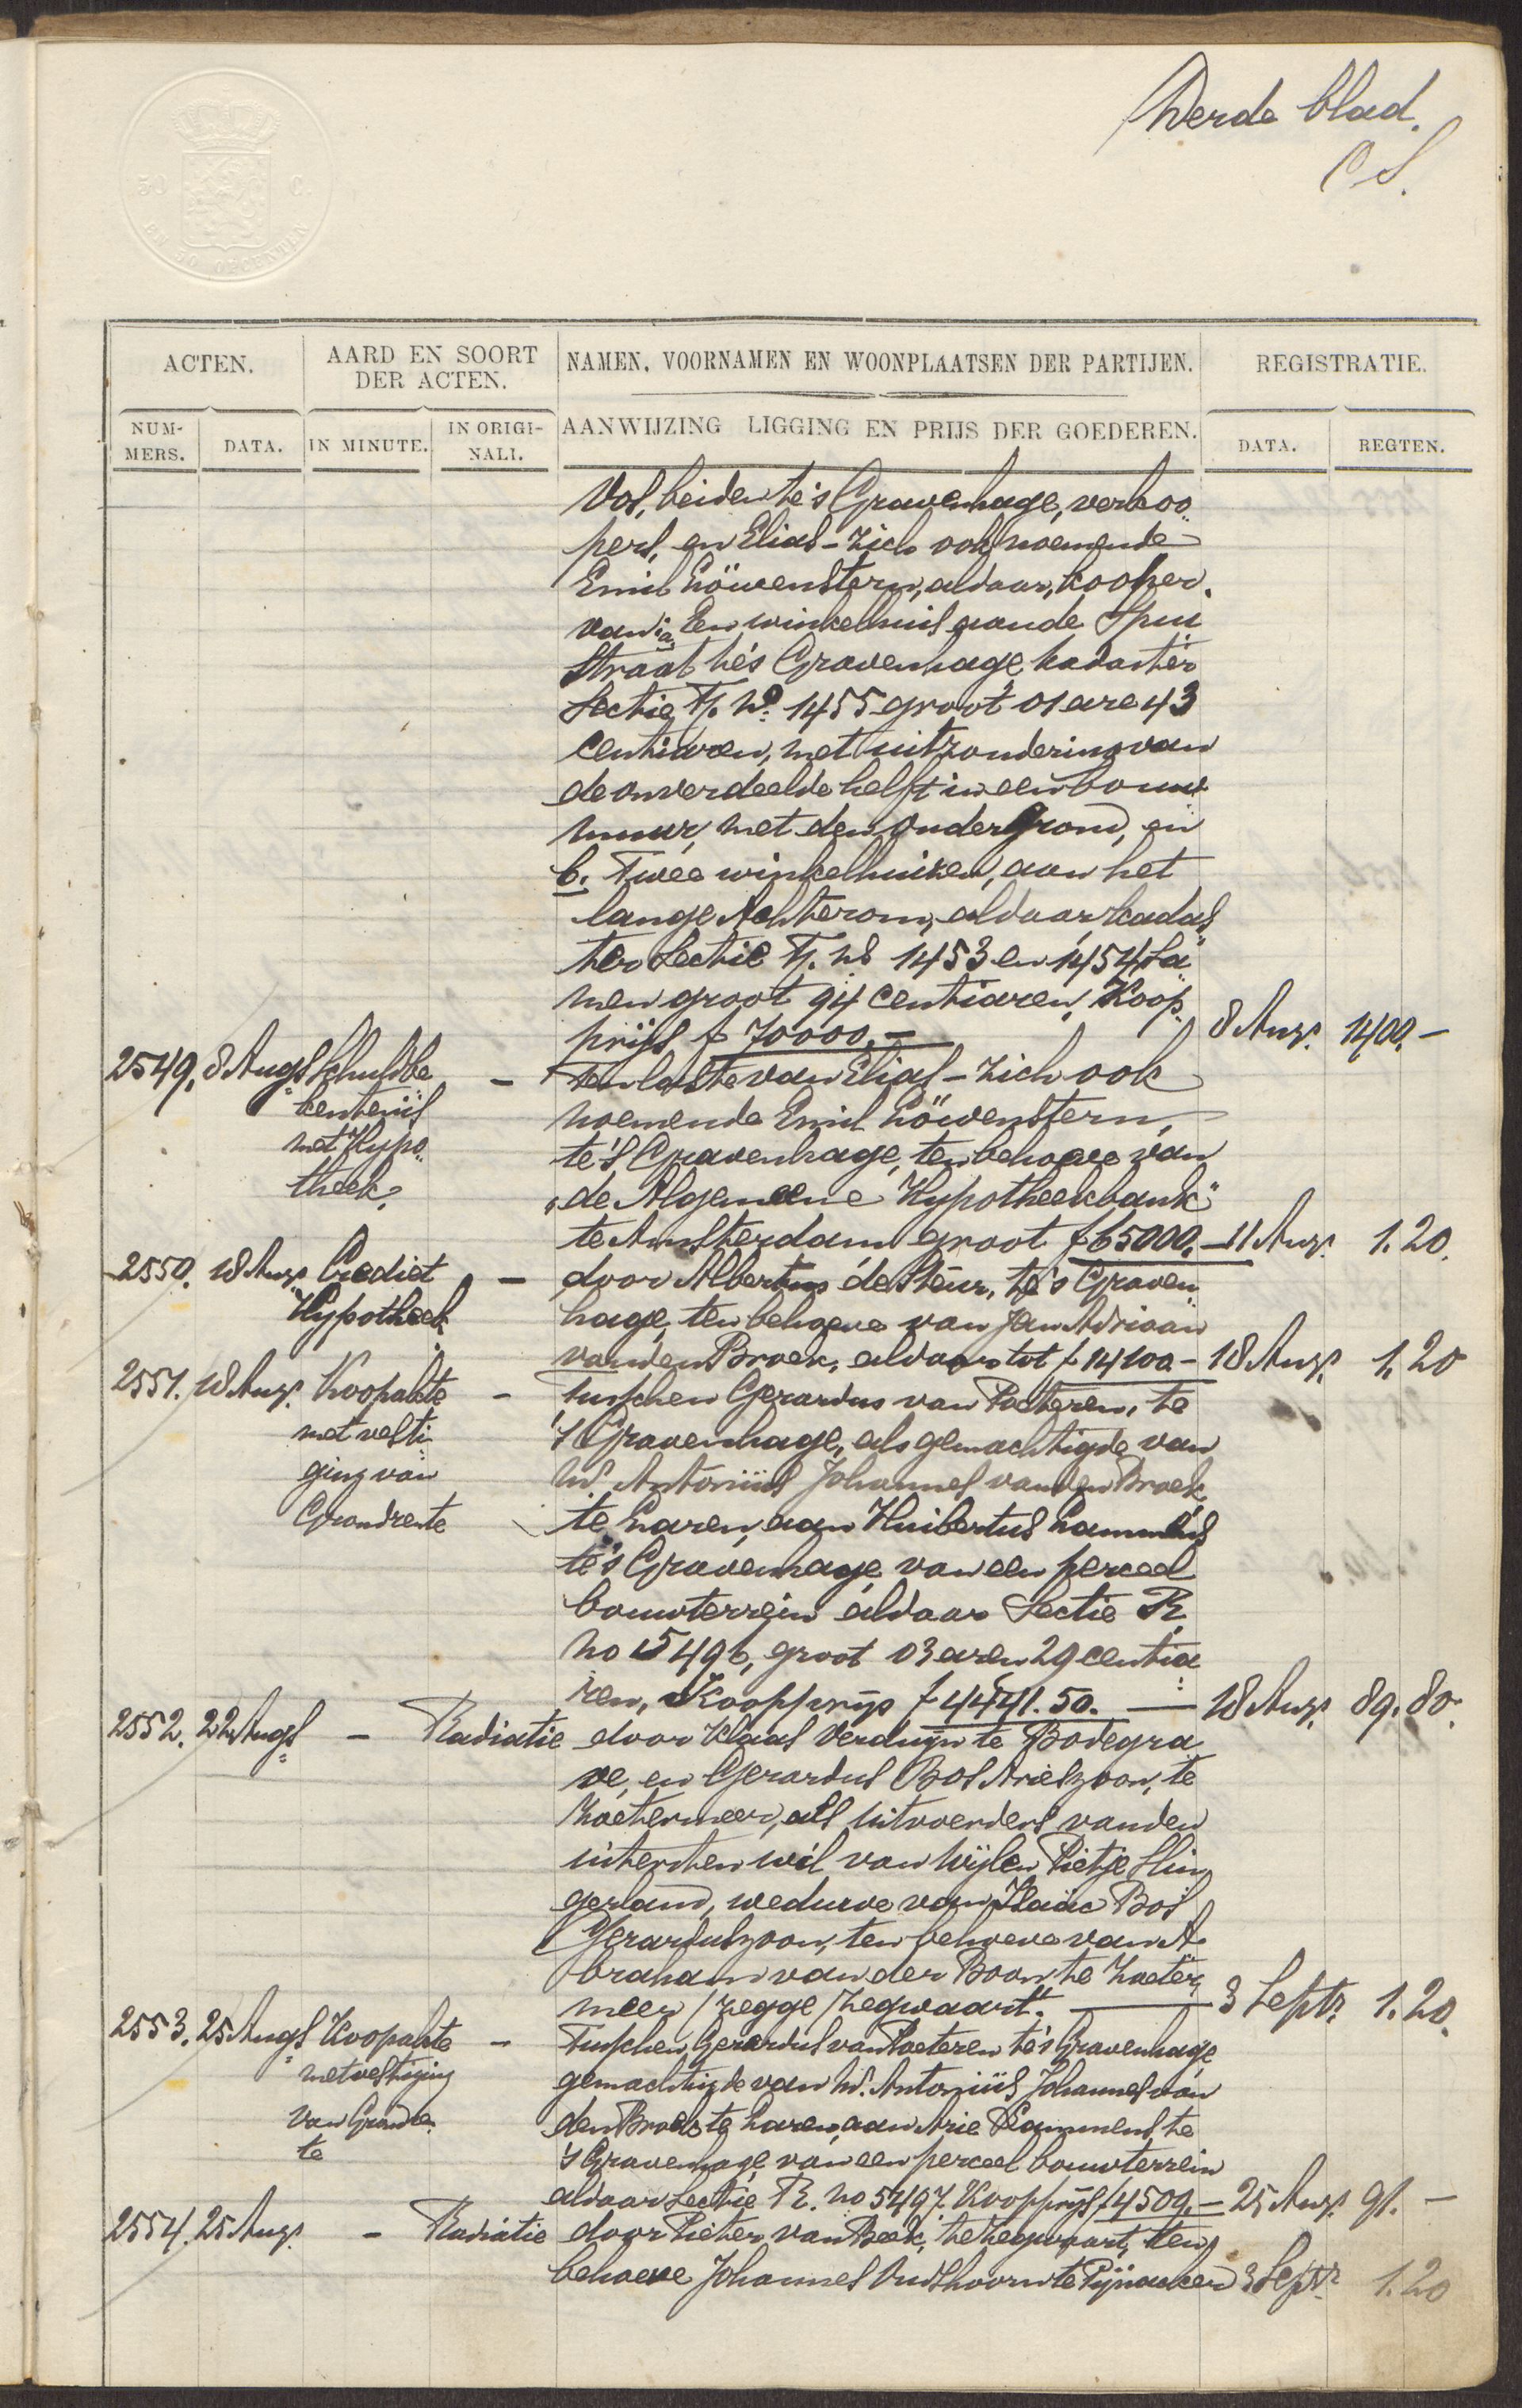 Derde blad.
C S.
50 C.
EN 50 OPCENTEN
ACTEN.
AARD EN SOORT DER ACTEN.
NAMEN, VOORNAMEN EN WOONPLAATSEN DER PARTIJEN.
REGISTRATIE.
NUM-MERS.
DATA.
IN MINUTE.
IN ORIGI-NALI.
AANWIJZING LIGGING EN PRIJS DER GOEDEREN.
DATA.
REGTEN.
Vos, beiden te 's Gravenhage, verkoo„
pers, en Elias - zich ook noemende
Emil Löwenstern, aldaar, kooper.
van: a Een winkelhuis aan de Spui
straat te 's Gravenhage kadaster
Sectie F. No 1455 groot 01 are 43
centiaren, met uitzondering van
de onverdeelde helft in een bouw
muur, met den ondergrond, en
b. Twee winkelhuizen, aan het
lange Achterom, aldaar kadas
ter Sectie F. No 1453 en 1454 Sa
men groot 94 centiaren, Koop„
prijs f 70000.- 8 Augs. 1400.-
2549. 8 Augs Schuldbe - Ten laste van Elias - zich ook
kentenis noemende Emil Löwenstern,
met Hypo„ te 's Gravenhage, ten behoeve van
theek. „de Algemeene Hypotheekbank"
te Amsterdam groot f 65000.- 11 Augs. 1.20.
2550. 18 Augs. Crediet - door Albertus de Steur, te 's Graven„
Hypotheek hage, ten behoeve van Jan Adriaan
van den Broek, aldaar tot f 14100.- 18 Augs. 1.20
2551. 18 Augs. Koopakte - Tusschen Gerardus van Poeteren, te
met vesti„ 's Gravenhage, als gemachtigde van
ging van Mr. Antonius Johannes van den Broek
Grondrente te Laren, aan Huibertus Lammens
te 's Gravenhage, van een perceel
bouwterrein aldaar Sectie R.
No 5496, groot 03 aren 29 centia
ren, Koopprijs f 4441.50. - 18 Augs. 89.80.
2552. 22 Augs - Radiatie door Klaas Verduijn te Bodegra
ve, en Gerardus Bos Arieszoon, te
Zoetermeer, als uitvoerders van den
uitersten wil van wijlen Pietje Slin„
gerland, weduwe van Isaac Bos
Gerarduszoon, ten behoeve van A„
braham van der Boon, te Zoeter„
meer /zegge/ Zegwaart. - 3 Septr. 1.20.
2553. 25 Augs Koopakte - Tusschen Gerardus van Poeteren te 's Gravenhage,
met vestiging gemachtigde van Mr. Antonius Johannes van
van Grondren„ den Broek te Laren, aan Arie Lammens te
te 's Gravenhage, van een perceel bouwterrein
aldaar Sectie R. No 5497. Koopprijs f 4509.- 25 Augs. 91.-
2554. 25 Augs. - Radiatie door Pieter van Beek, te Zegwaart, ten
behoeve Johannes Oudshoorn te Pijnacker 3 Septr. 1.20